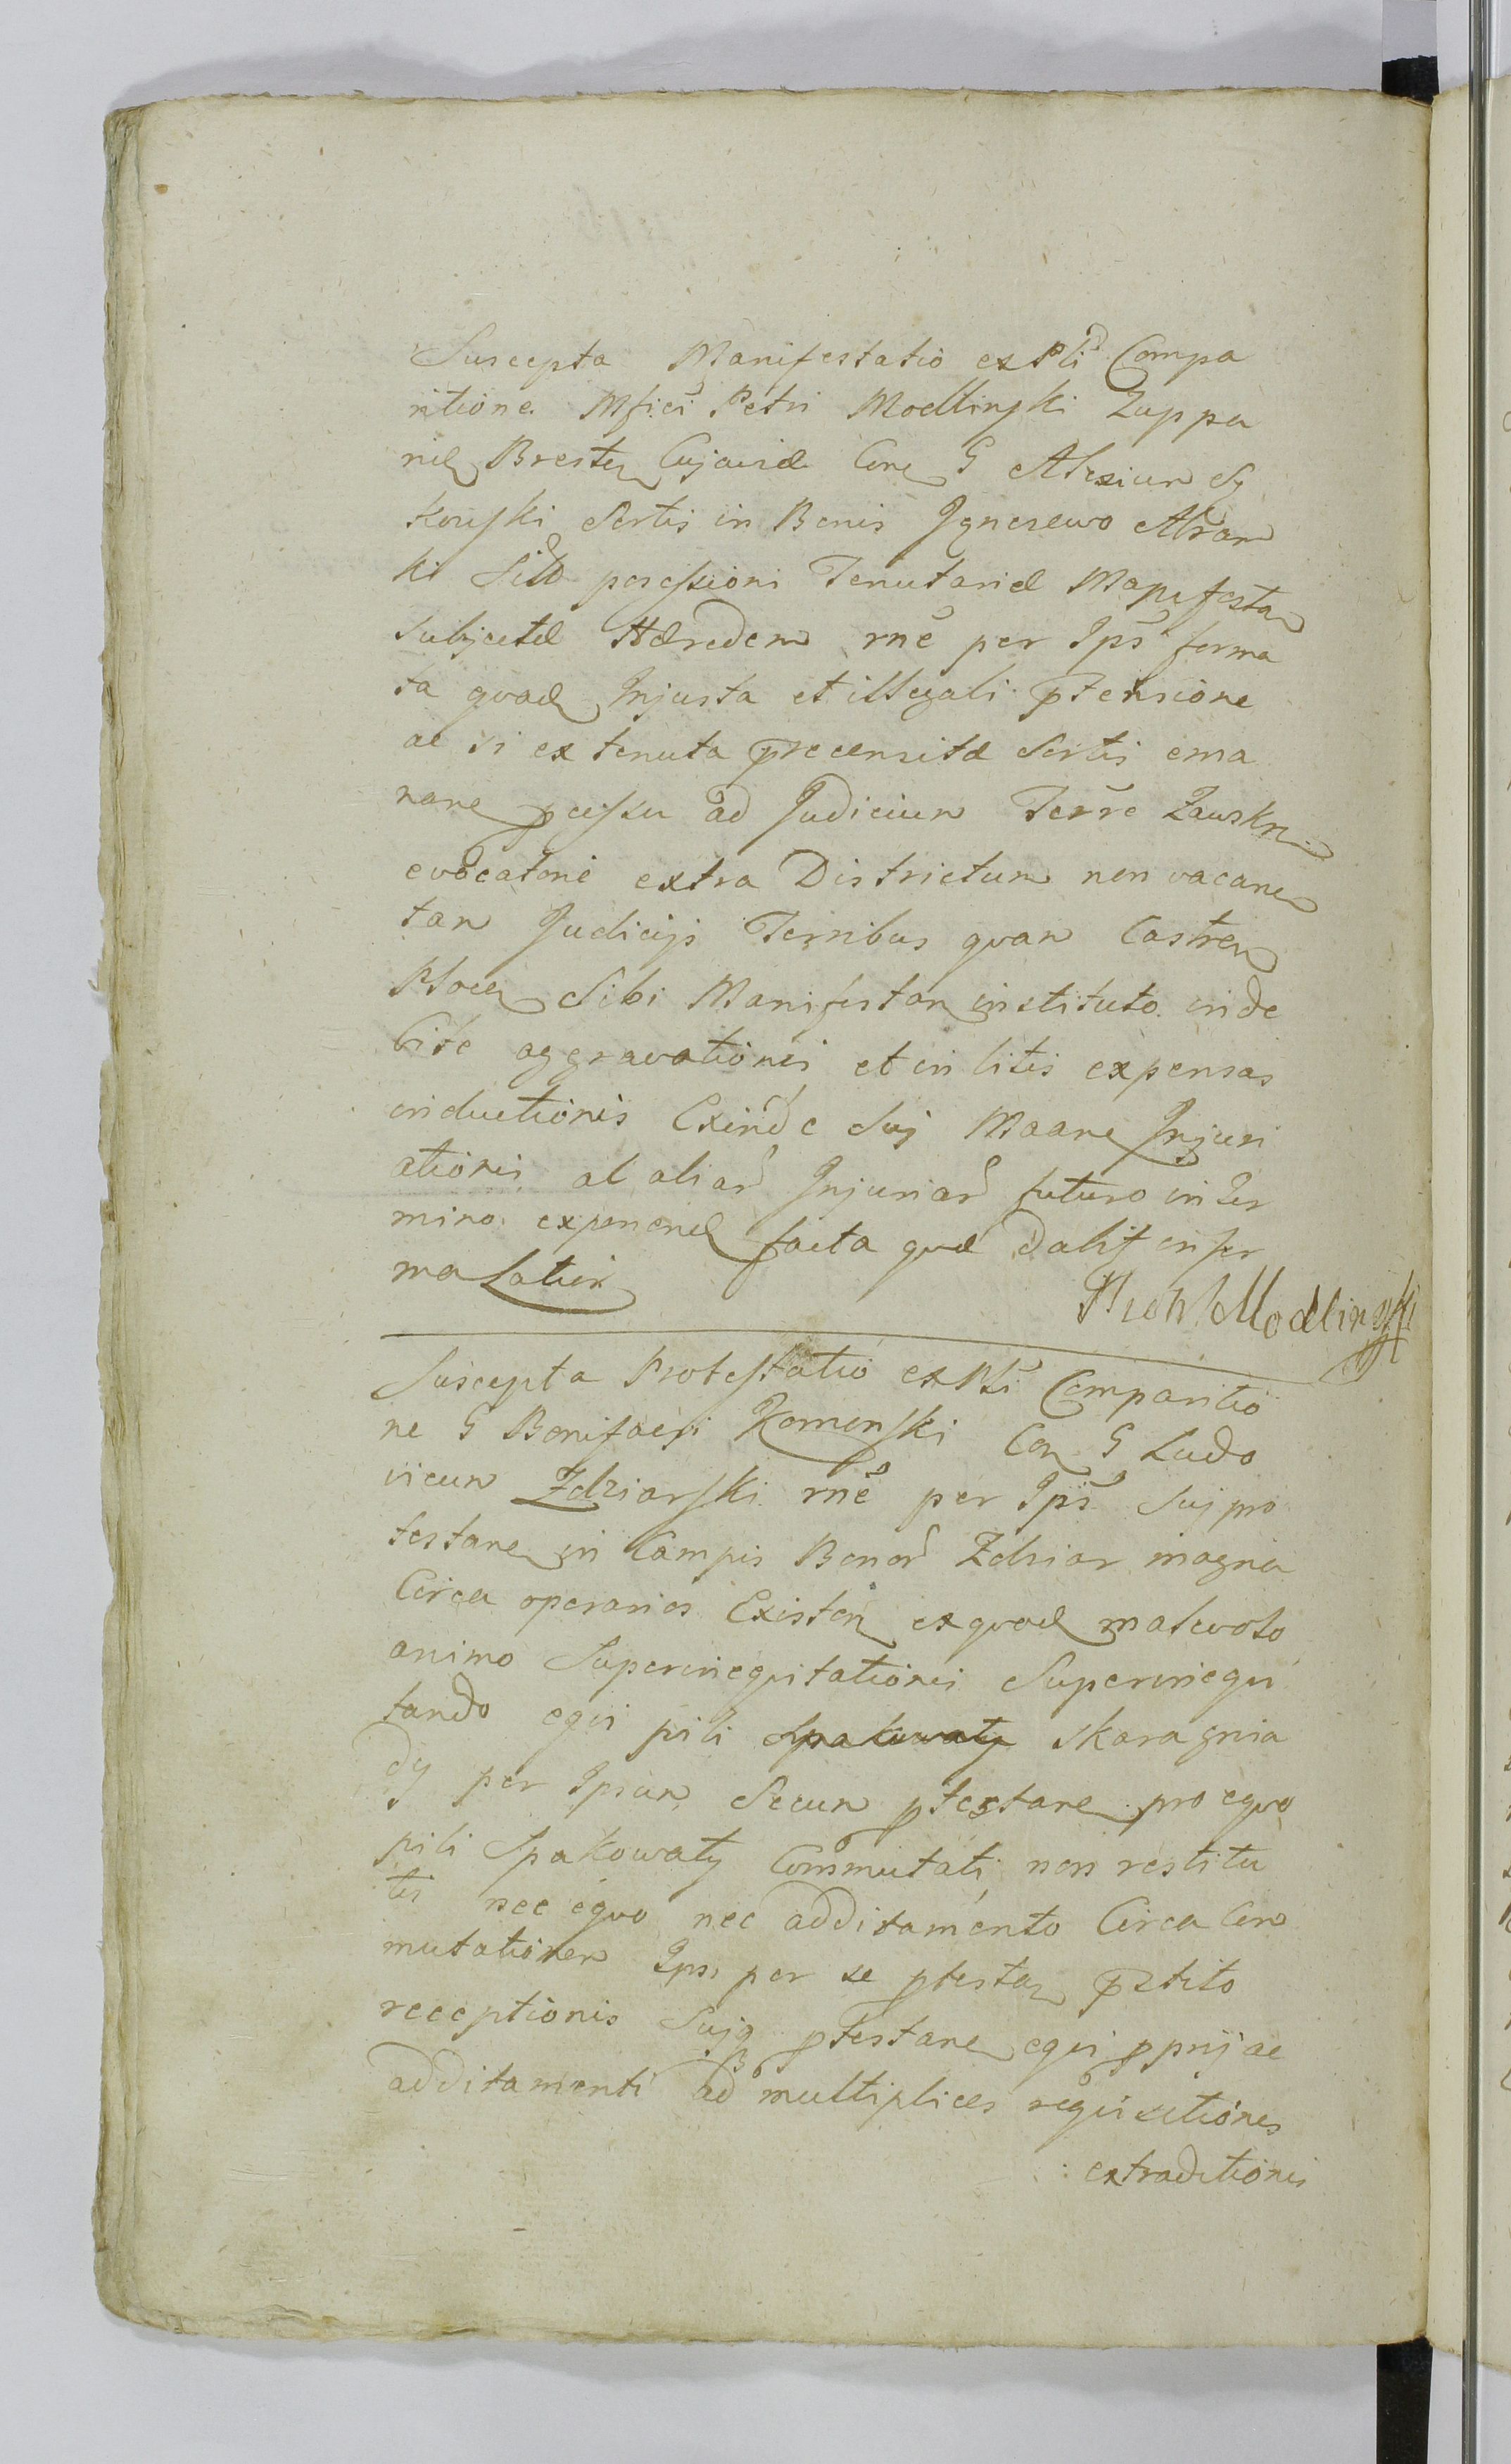 Suscepta Manifestatio ex Psli Compa
ritione Mfici Petri Modlinski Zuppa
rid Bresten Cujavid Con G Alexium Sy
konski Sortis in Bonis Jgnacewo Abram
ki possessioni Tenutarid Manifestan
subjectæ Hæredem rnē per Jps forma
ta quadӕ Jnjusta et illegali ptensione
ac si ex tenuta precensitӕ Sortis ema
nane pcessu ad Judicium Terre Zawskrn
evocatoriē extra Districtum non vacane
tam Judicijs Terribus quam Castren
Plocen Sibi Manifestan instituto inde
bite aggravationis et in litis expensas
inductionis Exinde Suj Maane Jnjuri
ationis al aliar Jnjuriar futuro in ter
mino exponend facta quӕ dabit in for
ma Latiori
Piotr Modlinski
Suscepta Protestatio ex Psli Comparitio
ne G Bonifacyi Komenski Con G Ludo
vicum Zdziarski rnē per Jps Suj pro
testane in Campis Bonor Zdziar magna
Circa operarios Existen ex quod malevolo
animo Superinequitationis Superinequi
tando equi pili Spakowaty skaragnia
dy per Jpsum Secum ptestane pro equo
pili Spakowaty Commutati non restitu
tis nec equo nec additamento Circa Com
mutationem Jpsi per se ptestan pstito
receptionis Sujq ptestane equi pprij ac
additamenti ad multiplices requisitiones
extraditionis